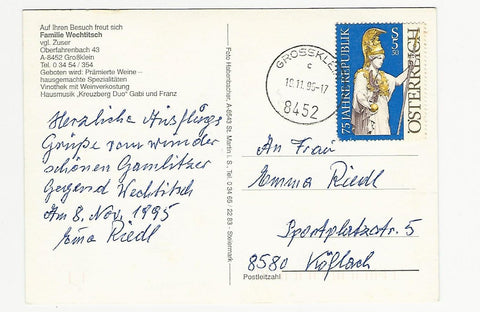 Auf Ihren Besuch freut sich
Familie Wechtitsch
vgl. Zuser
Oberfahrenbach 43
A-8452 Großklein
Tel. 0 34 54 / 354
Geboten wird: Prämierte Weine –
hausgemachte Spezialitäten
Vinothek mit Weinverkostung
Hausmusik „Kreuzberg Duo" Gabi und Franz
Herzliche Ausflugs
Grüße vom wunder
schönen Gamlitzer
Gegend Wechtitsch
Am 8. Nov, 1995
Ema Riedl
Foto Hebenbacher, A-8543 St. Martin i. S., Tel. 0 34 65 / 22 83 - Steiermark
GROSSKLEIN
c
10.11.95-17
8452
75 JAHRE REPUBLIK
S 5.50
ÖSTERREICH
An Frau
Emma Riedl
Sportplatzstr. 5
8580 Köflach
Postleitzahl